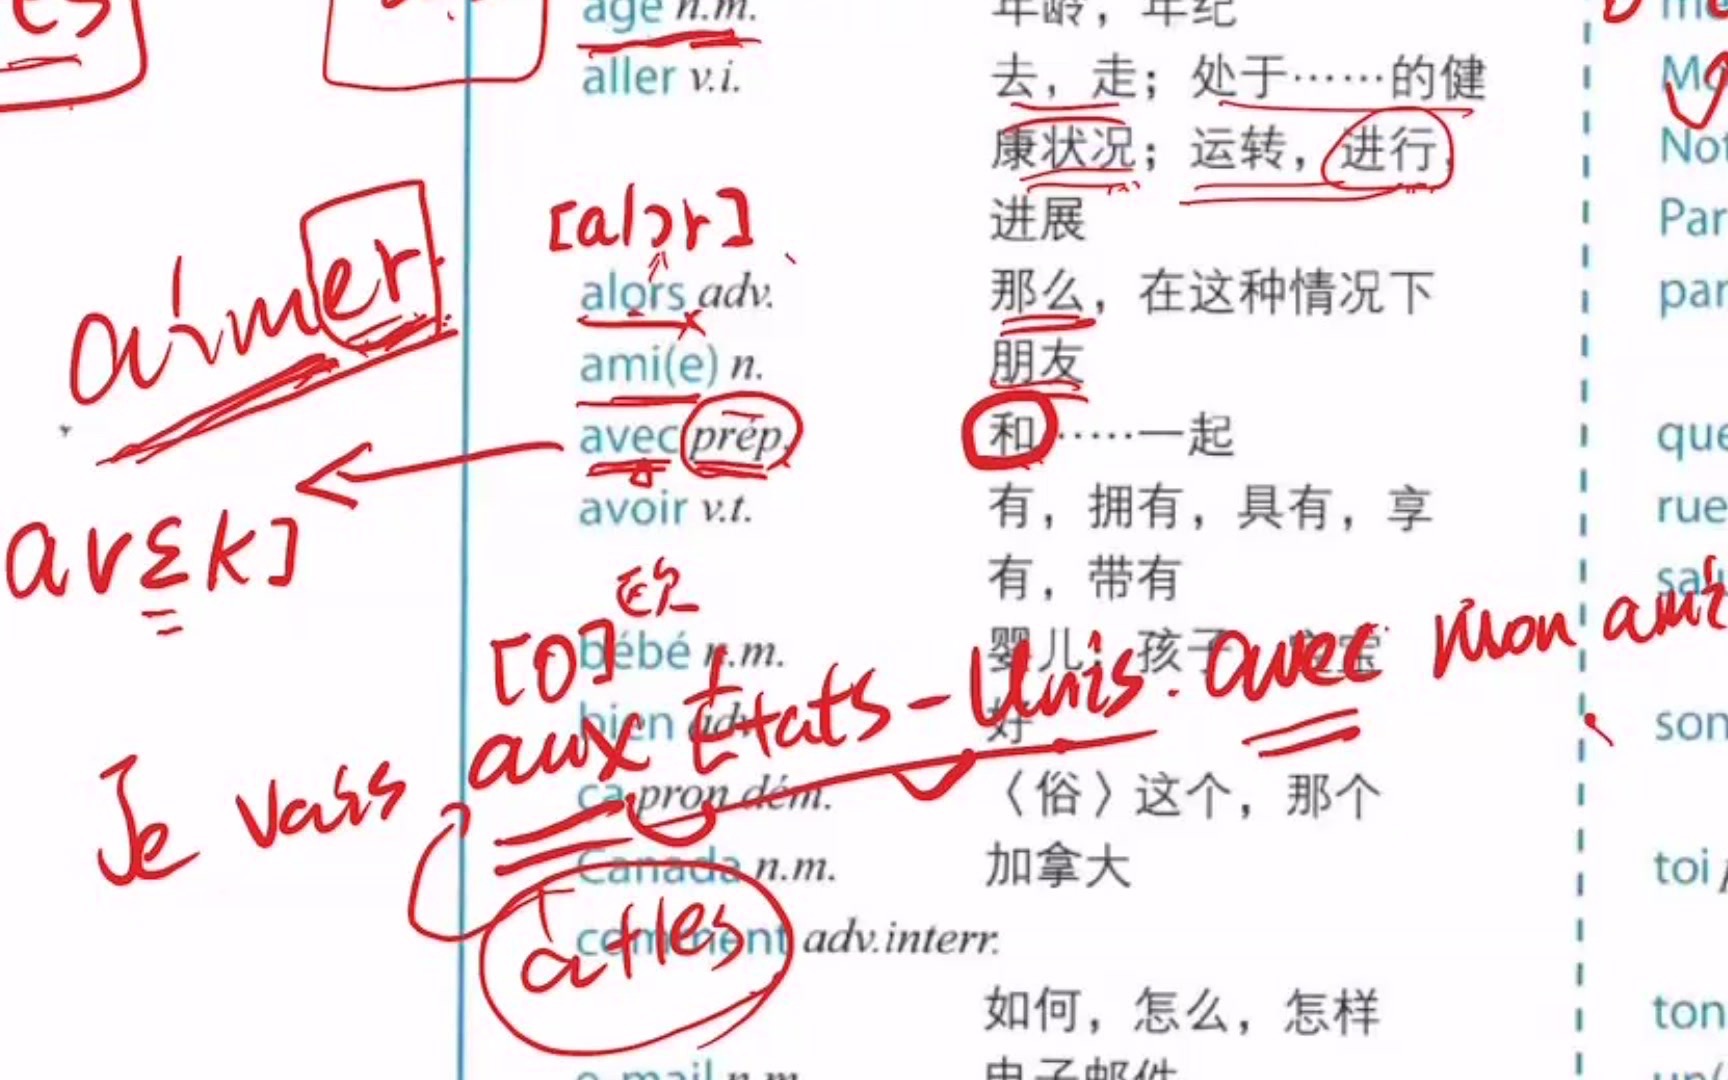 es
âge n.m. 年龄，年纪
aller v.i. 去，走；处于……的健
康状况；运转，进行，
进展
[alɔr]
alors adv. 那么，在这种情况下
aimer
ami(e) n. 朋友
avec prép. 和……一起
avoir v.t. 有，拥有，具有，享
有，带有
avɛk]
[o] 欧
bébé n.m. 婴儿；孩子
bien adv. 好
Je vais aux États-Unis. avec mon ami
ça pron.dém. 〈俗〉这个，那个
Canada n.m. 加拿大
à+les
comment adv.interr.
如何，怎么，怎样
e-mail n.m. 电子邮件
Par
par
que
rue
son
toi
ton